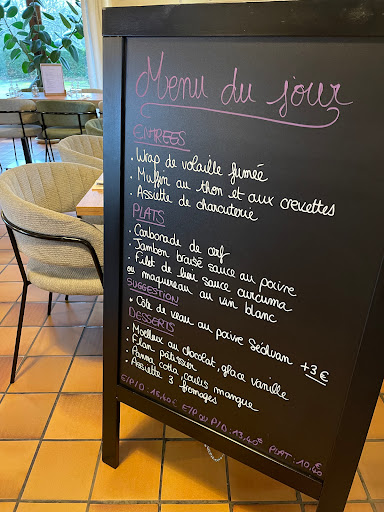 Menu du jour
ENTREES
. Wrap de volaille fumée
. Muffin au thon et aux crevettes
. Assiette de charcuterie
PLATS
. Carbonade de cerf
. Jambon braisé sauce au poivre
. Filet de lieu sauce curcuma
ou maquereau au vin blanc
SUGGESTION
* Côte de veau au poivre Séchuan +3 €
DESSERTS
. Moelleux au chocolat, glace vanille
. Flan pâtissier
. Panna cotta coulis mangue
. Assiette 3 fromages
E/P/D : 15,40€ E/P ou P/D : 13,40€ PLAT : 10,40€